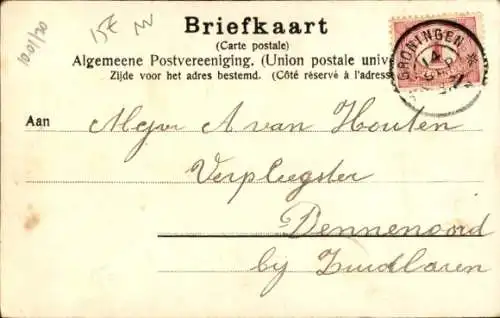 1001/20
15E
Briefkaart
(Carte postale)
Algemeene Postvereeniging. (Union postale unive
Zijde voor het adres bestemd. (Côté réservé à l'adress
GRONINGEN
14
Aan Mejvr A van Houten
Verpleegster
Dennenoord
bij Zuidlaren